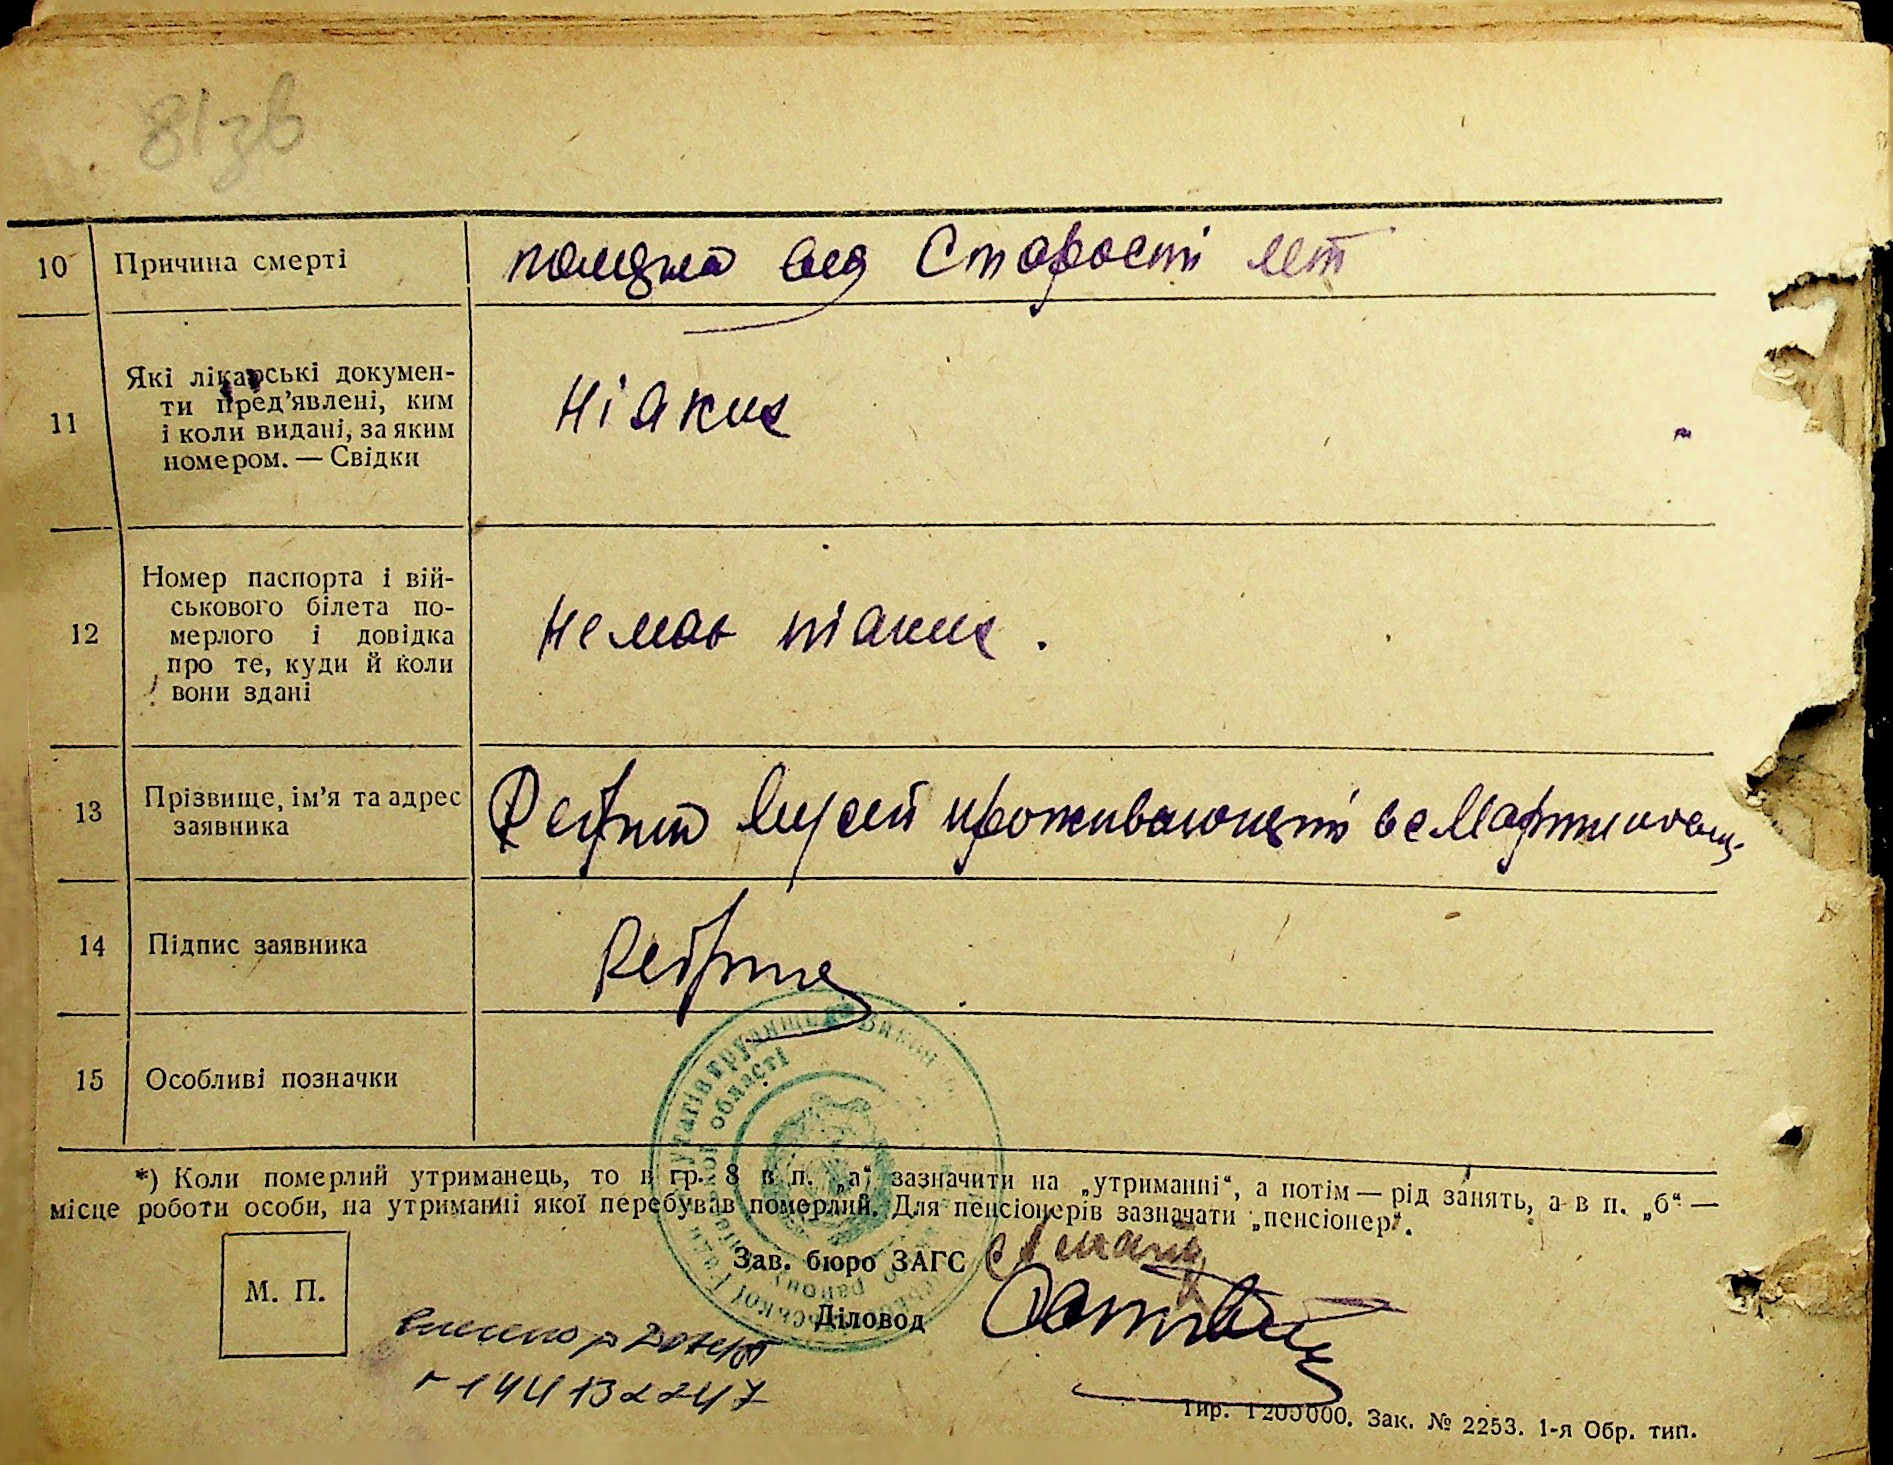 81зв
10 Причина смерті
померла від Старості лет
11 Які лікарські докумен-
ти пред'явлені, ким
і коли видані, за яким
номером. — Свідки
Ніяких
12 Номер паспорта і вій-
ськового білета по-
мерлого і довідка
про те, куди й коли
вони здані
Немає ніяких.
13 Прізвище, ім'я та адрес
заявника
проживающий в с Мартиновці
14 Підпис заявника
15 Особливі позначки
*) Коли померлий утриманець, то в гр. 8 в п. „а“ зазначити на „утриманні“, а потім — рід занять, а в п. „б“ —
місце роботи особи, на утриманні якої перебував померлий. Для пенсіонерів зазначати „пенсіонер“.
області
району
Зав. бюро ЗАГС
М. П.
Діловод
Тир. 1200000. Зак. № 2253. 1-я Обр. тип.